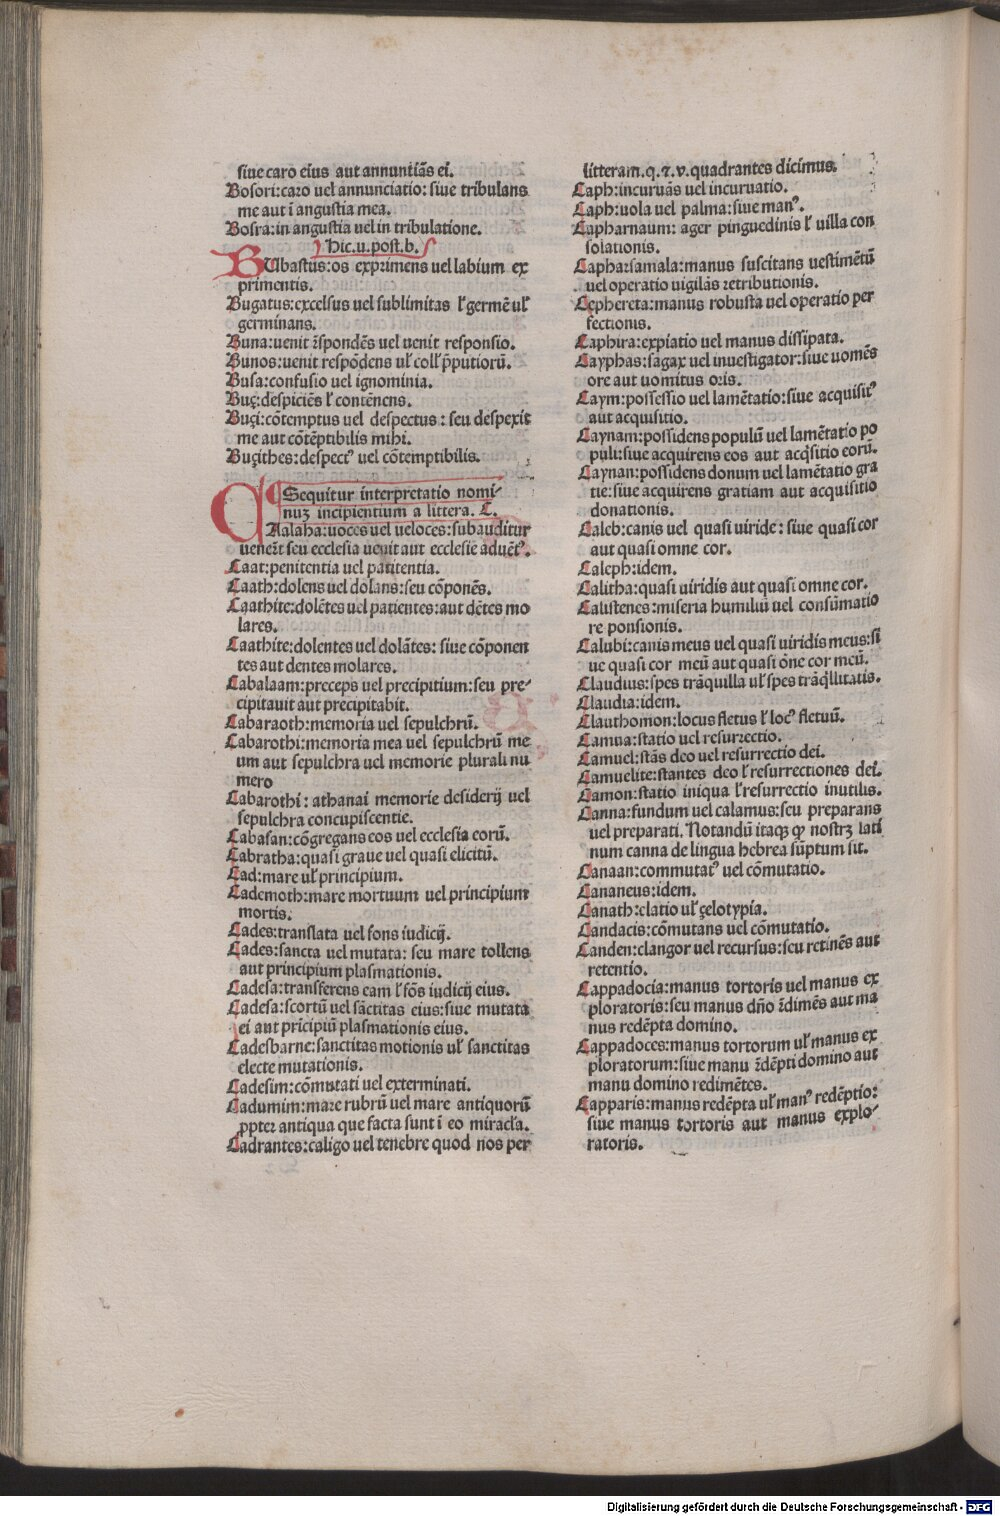 siue caro eius aut annuntiãs ei.
Bosori:caro uel annunciatio:siue tribulans
me aut ĩ angustia mea.
Bosra:in angustia uel in tribulatione.
Hic.u.post.b.
BUbastus:os exprimens uel labium ex
primentis.
Bugatus:excelsus uel sublimitas ł germẽ uł
germinans.
Buna:uenit r̃spondẽs uel uenit responsio.
Bunos:uenit respõdens uł coll' p̱putiorũ.
Busa:confusio uel ignominia.
Buç:despiciẽs ł contẽnens.
Buçi:cõtemptus uel despectus: seu despexit
me aut cõtẽptibilis mihi.
Buçithes:despect⁹ uel cõtemptibilis.
Sequitur interpretatio nomi⸗
nuʒ incipientium a littera. C.
CAalaha:uoces uel ueloces:subauditur
uener̃t seu ecclesia uenit aut ecclesie aduẽt⁹.
Caat:penitentia uel patitentia.
Caath:dolens uel dolans:seu cõponẽs.
Caathite:dolẽtes uel patientes:aut dẽtes mo
lares.
Caathite:dolentes uel dolãtes: siue cõponen
tes aut dentes molares.
Cabalaam:preceps uel precipitium:seu pre⸗
cipitauit aut precipitabit.
Cabaraoth:memoria uel sepulchrũ.
Cabarothi:memoria mea uel sepulchrũ me
um aut sepulchra uel memorie plurali nu
mero
Cabarothi: athanai memorie desiderij uel
sepulchra concupiscentie.
Cabasan:cõgregans eos uel ecclesia eorũ.
Cabratha:quasi graue uel quasi elicitũ.
Cad:mare uł principium.
Cademoth:mare mortuum uel principium
mortis.
Cades:translata uel fons iudicij.
Cades:sancta uel mutata: seu mare tollens
aut principium plasmationis.
Cadesa:transferens eam ł fõs iudicij eius.
Cadesa:scortũ uel sãctitas eius:siue mutata
ei aut prĩcipiũ plasmationis eius.
Cadesbarne:sanctitas motionis uł sanctitas
electe mutationis.
Cadesim:cõmutati uel exterminati.
Cadumim:mare rubrũ uel mare antiquorũ
p̱pter antiqua que facta sunt ĩ eo miracła.
Cadrantes:caligo uel tenebre quod nos per
litteram.q.⁊.v.quadrantes dicimus.
Caph:incuruãs uel incuruatio.
Caph:uola uel palma:siue man⁹.
Capharnaum: ager pinguedinis ł uilla con
solationis.
Capharsamala:manus suscitans uestimẽtũ
uel operatio uigilãs retributionis.
Cephereta:manus robusta uel operatio per
fectionis.
Caphira:expiatio uel manus dissipata.
Cayphas:sagax uel inuestigator:siue uomẽs
ore aut uomitus oris.
Caym:possessio uel lamẽtatio:siue acquisit⁹
aut acquisitio.
Caynam:possidens populũ uel lamẽtatio po
puli:siue acquirens eos aut acq̃sitio eorũ.
Caynan:possidens donum uel lamẽtatio gra
tie:siue acquirens gratiam aut acquisitio
donationis.
Caleb:canis uel quasi uiride: siue quasi cor
aut quasi omne cor.
Caleph:idem.
Calitha:quasi uiridis aut quasi omne cor.
Calistenes:miseria humiliũ uel consũmatio
re ponsionis.
Calubi:canis meus uel quasi uiridis meus:si
ue quasi cor meũ aut quasi õne cor meũ.
Claudius:spes trãquilla uł spes trãq̃llitatis.
Claudia:idem.
Clauthomon:locus fletus ł loc⁹ fletuũ.
Camua:statio uel resurrectio.
Camuel:stãs deo uel resurrectio dei.
Camuelite:stantes deo ł resurrectiones dei.
Camon:statio iniqua ł resurrectio inutilis.
Canna:fundum uel calamus:seu preparans
uel preparati. Notandũ itaqʒ qꝫ nostrʒ lati
num canna de lingua hebrea sũptum sit.
Canaan:commutat⁹ uel cõmutatio.
Cananeus:idem.
Canath:elatio uł çelotypia.
Candacis:cõmutans uel cõmutatio.
Canden:clangor uel recursus:seu retinẽs aut
retentio.
Cappadocia:manus tortoris uel manus ex
ploratoris:seu manus dño r̃dimẽs aut ma
nus redẽpta domino.
Cappadoces:manus tortorum uł manus ex
ploratorum:siue manu r̃dẽpti domino aut
manu domino redimẽtes.
Capparis:manus redẽpta uł man⁹ redẽptio:
siue manus tortoris aut manus explo⸗
ratoris.
Digitalisierung gefördert durch die Deutsche Forschungsgemeinschaft - DFG